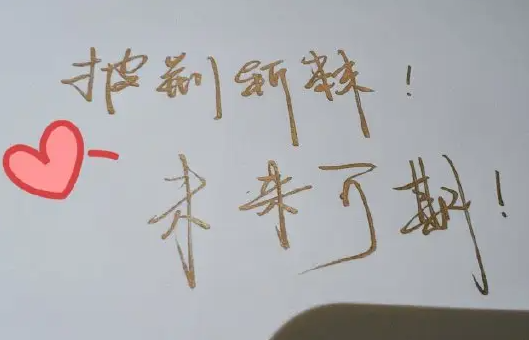 披荆斩棘！
未来可期！